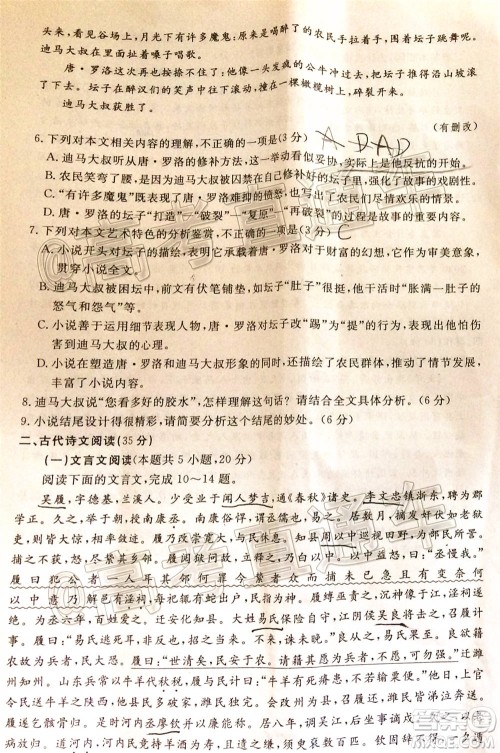 头来，看见谷场上，月光下有许多魔鬼：原来是喝醉了的农民手拉着手，围着坛子跳舞呢。
迪马大叔在里面扯着嗓子唱歌。
唐·罗洛这次再也按捺不住了：他像一头发疯的公牛冲过去，把坛子推得沿山坡滚
了下去。坛子在醉汉们的笑声中往下滚动，撞在一棵橄榄树上，碎裂开来。
迪马大叔获胜了。
（有删改）
6. 下列对本文相关内容的理解，不正确的一项是(3分) A D A D
A. 迪马大叔听从唐·罗洛的修补方法，一举一动看似妥协，实际上是他反抗的开始。
B. 农民笑弯了腰，是因为迪马大叔被囚禁在自己修补好的坛子里，强化了故事的戏剧性。
C. “有许多魔鬼”既表现了唐·罗洛难掩的愤怒，也写出了农民们尽情欢乐的情景。
D. 唐·罗洛的坛子“打造”“破裂”“复原”“再破裂”的过程是故事的重要内容。
7. 下列对本文艺术特色的分析鉴赏，不正确的一项是(3分) C
A. 小说开头对坛子的描写，象征着唐·罗洛对于财富的幻想，它作为主要意象，
贯穿小说全文。
B. 迪马大叔被困坛中，前文有伏笔铺垫，如坛子“肚子”很挺，他干活时“胀满一肚子的
怒气和怨气”等。
C. 小说善于运用细节表现人物，唐·罗洛改“踢”为“提”的行为，表现出他意识到
迪马大叔的重要，情绪有所缓和。
D. 小说在塑造唐·罗洛和迪马大叔形象的同时，还描绘了农民群体，推动了情节发展，
丰富了小说内容。
8. 迪马大叔说“您看多好的胶水”，怎样理解这句话？请结合全文具体分析。(6分)
9. 小说结尾设计得很精彩，请简要分析这个结尾的妙处。(6分)
二、古代诗文阅读(35分)
（一）文言文阅读(本题共5小题，20分)
阅读下面的文言文，完成10～14题。
吴履，字德基，兰溪人。少受业于闻人梦吉，通《春秋》诸史。李文忠镇浙东，聘为郡
学正。久之，举于朝，授南康丞。南康俗悍，谓丞儒也，易之。居数月，摘发奸伏如老狱
吏，则皆大惊，相率敛迹。履乃改崇宽大，与民休息。知县周以中巡视田野，为部民所詈。
捕之不获，怒，尽絷其乡邻。履阅狱问故，立释之，乃白以中。以中益怒，曰：“丞慢我。”
履曰犯公者一人耳其邻何罪今絷者众而捕未已急且有变奈何
以中意乃解邑有淫祠，每祀辄有蛇出户，民指为神。履缚巫责之，沉神像于江，淫祠遂绝。
为丞六年，百姓爱之。迁安化知县。大姓易氏保险自守，江阴侯吴良将击之，召履计
事。履曰：“易氏逃死耳，非反也，招之当来。不来，诛未晚。”良从之，易氏果至。良欲籍
农故为兵者，民大恐。履曰：“世清矣，民安于农。请籍其愿为兵者，不愿，可勿强。”迁潍
州知州。山东兵常以牛羊代秋税，履与民计曰：“牛羊有死瘠患，不若输粟便。”他日，上官
令民送牛羊之陕西，他县民多破家，潍民独完。会改州为县，召履还，潍民皆涕泣奔送。
履遂乞骸骨归。是时河内丞廖钦并以廉能称。居八年，调吴江，后坐事谪戍，
故病，道河内，河内民竞持羊酒为寿，且遗之缣，须臾衰数百匹。钦固辞不得，一夕遁